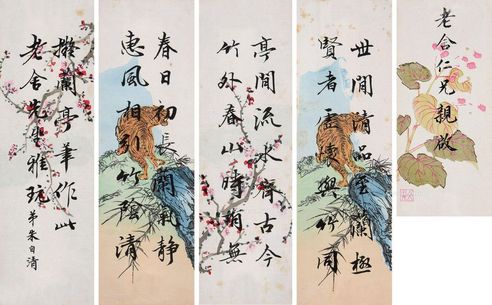 老舍仁兄親啟
世間清品至蘭極
賢者虛懷與竹同
亭間流水齊古今
竹外春山時有無
春日初長蘭氣静
惠風相引竹陰清
擬蘭亭筆作此
老舍先生雅玩
弟朱自清